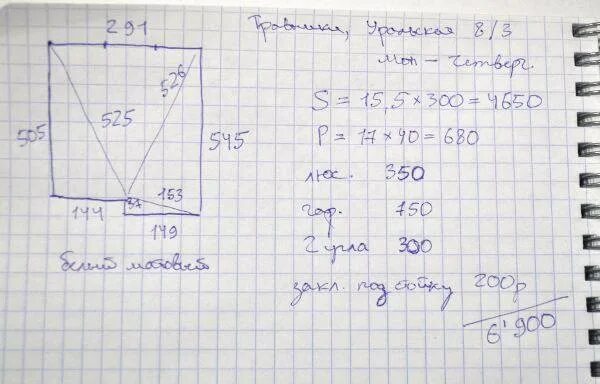 291
Травники, Уральская 8/3
Пон - Четверг.
526
S = 15,5 × 300 = 4650
505
525
545
P = 17 × 40 = 680
153
люс. 350
37
144
149
гар. 750
2 угла 300
белый матовый
закл. под бойку 200р
6'900